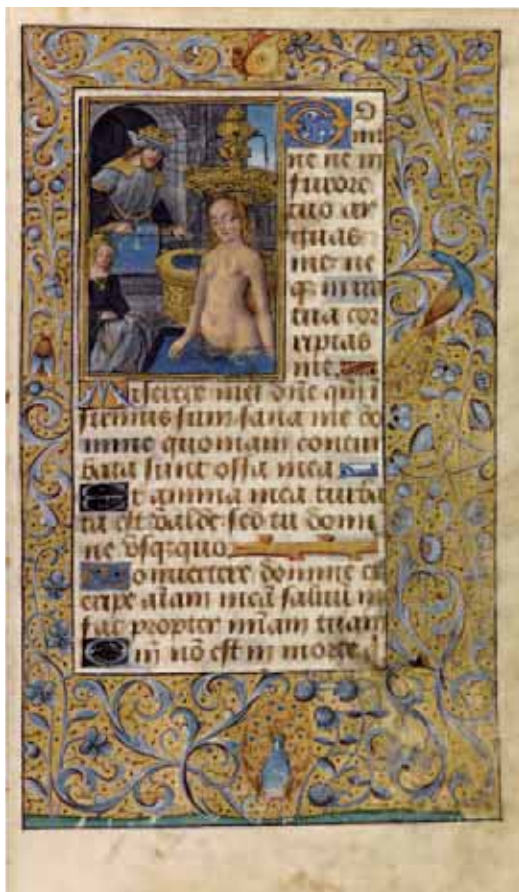 DO
mi
ne ne in
furore
tuo ar
guas
me: ne
q; in ira
tua cor
ripias
me.
Miserere mei dñe qm̃ ĩ
firmus sum: sana me do
mine quoniam contur
bata sunt ossa mea
Et anima mea turba
ta est valde: sed tu domi
ne vsq;quo.
Conuertere domine et
eripe aĩam meã saluũ me
fac propter mĩam tuam
Qm̃ nõ est in morte